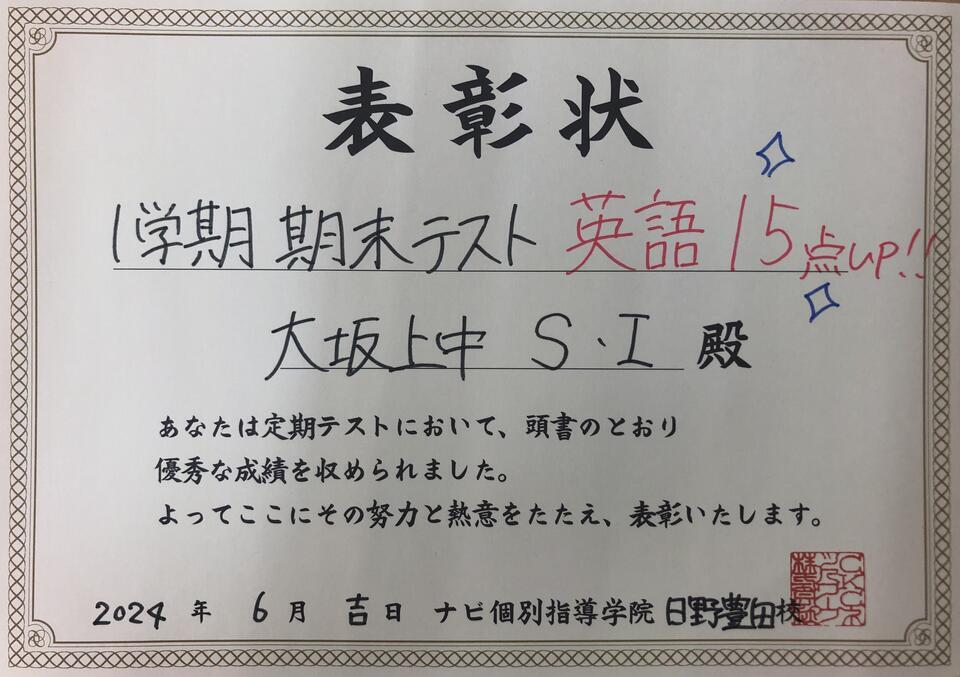 表彰状
1学期 期末テスト 英語 15点up!!
大坂上中 S・I 殿
あなたは定期テストにおいて、頭書のとおり
優秀な成績を収められました。
よってここにその努力と熱意をたたえ、表彰いたします。
2024 年 6 月 吉 日 ナビ個別指導学院 日野豊田校